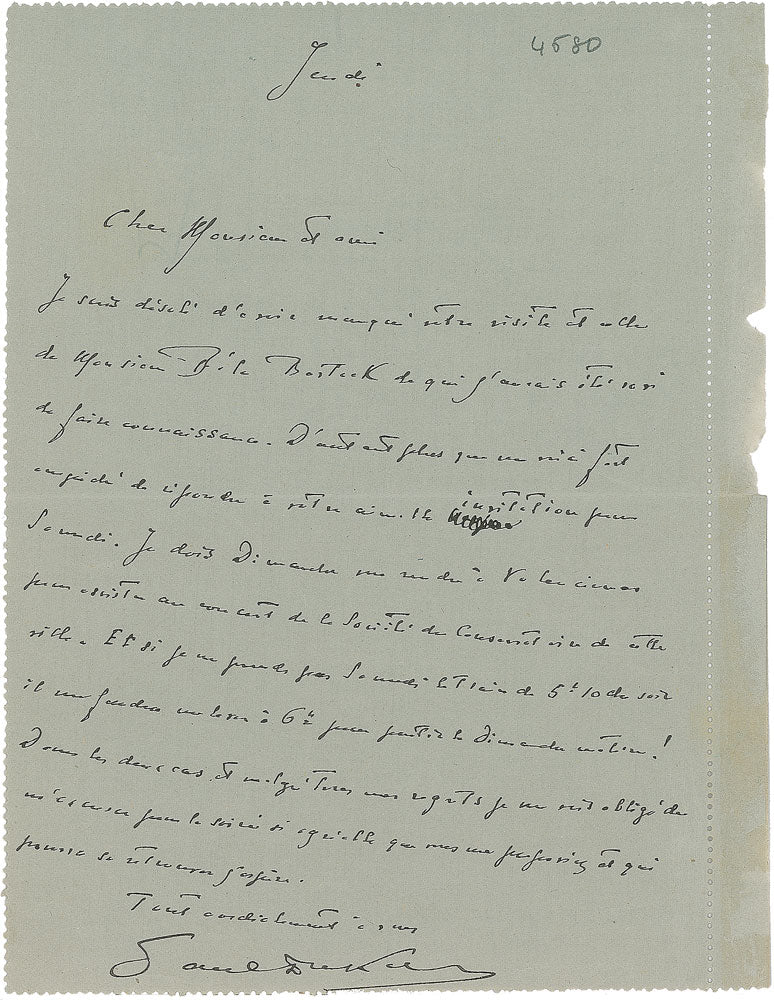 4580
Jeudi
Cher Monsieur et ami
Je suis désolé d'avoir manqué votre visite et celle
de Monsieur Béla Bartock de qui j'aurais été ravi
de faire connaissance. D'autant plus que me voici fort
empêché de répondre à votre aimable invitation pour
Samedi. Je dois Dimanche me rendre à Valenciennes
pour assister au concert de la Société du Conservatoire de cette
ville. Et si je ne prends pas Samedi le train de 5h 10 du soir
il me faudra me lever à 6h pour partir le Dimanche matin!
Dans les deux cas, et malgré tous mes regrets je me vois obligé de
m'excuser pour la soirée si agréable que vous me proposiez et qui
pourra se retrouver j'espère.
Tout cordialement à vous
Paul Dukas